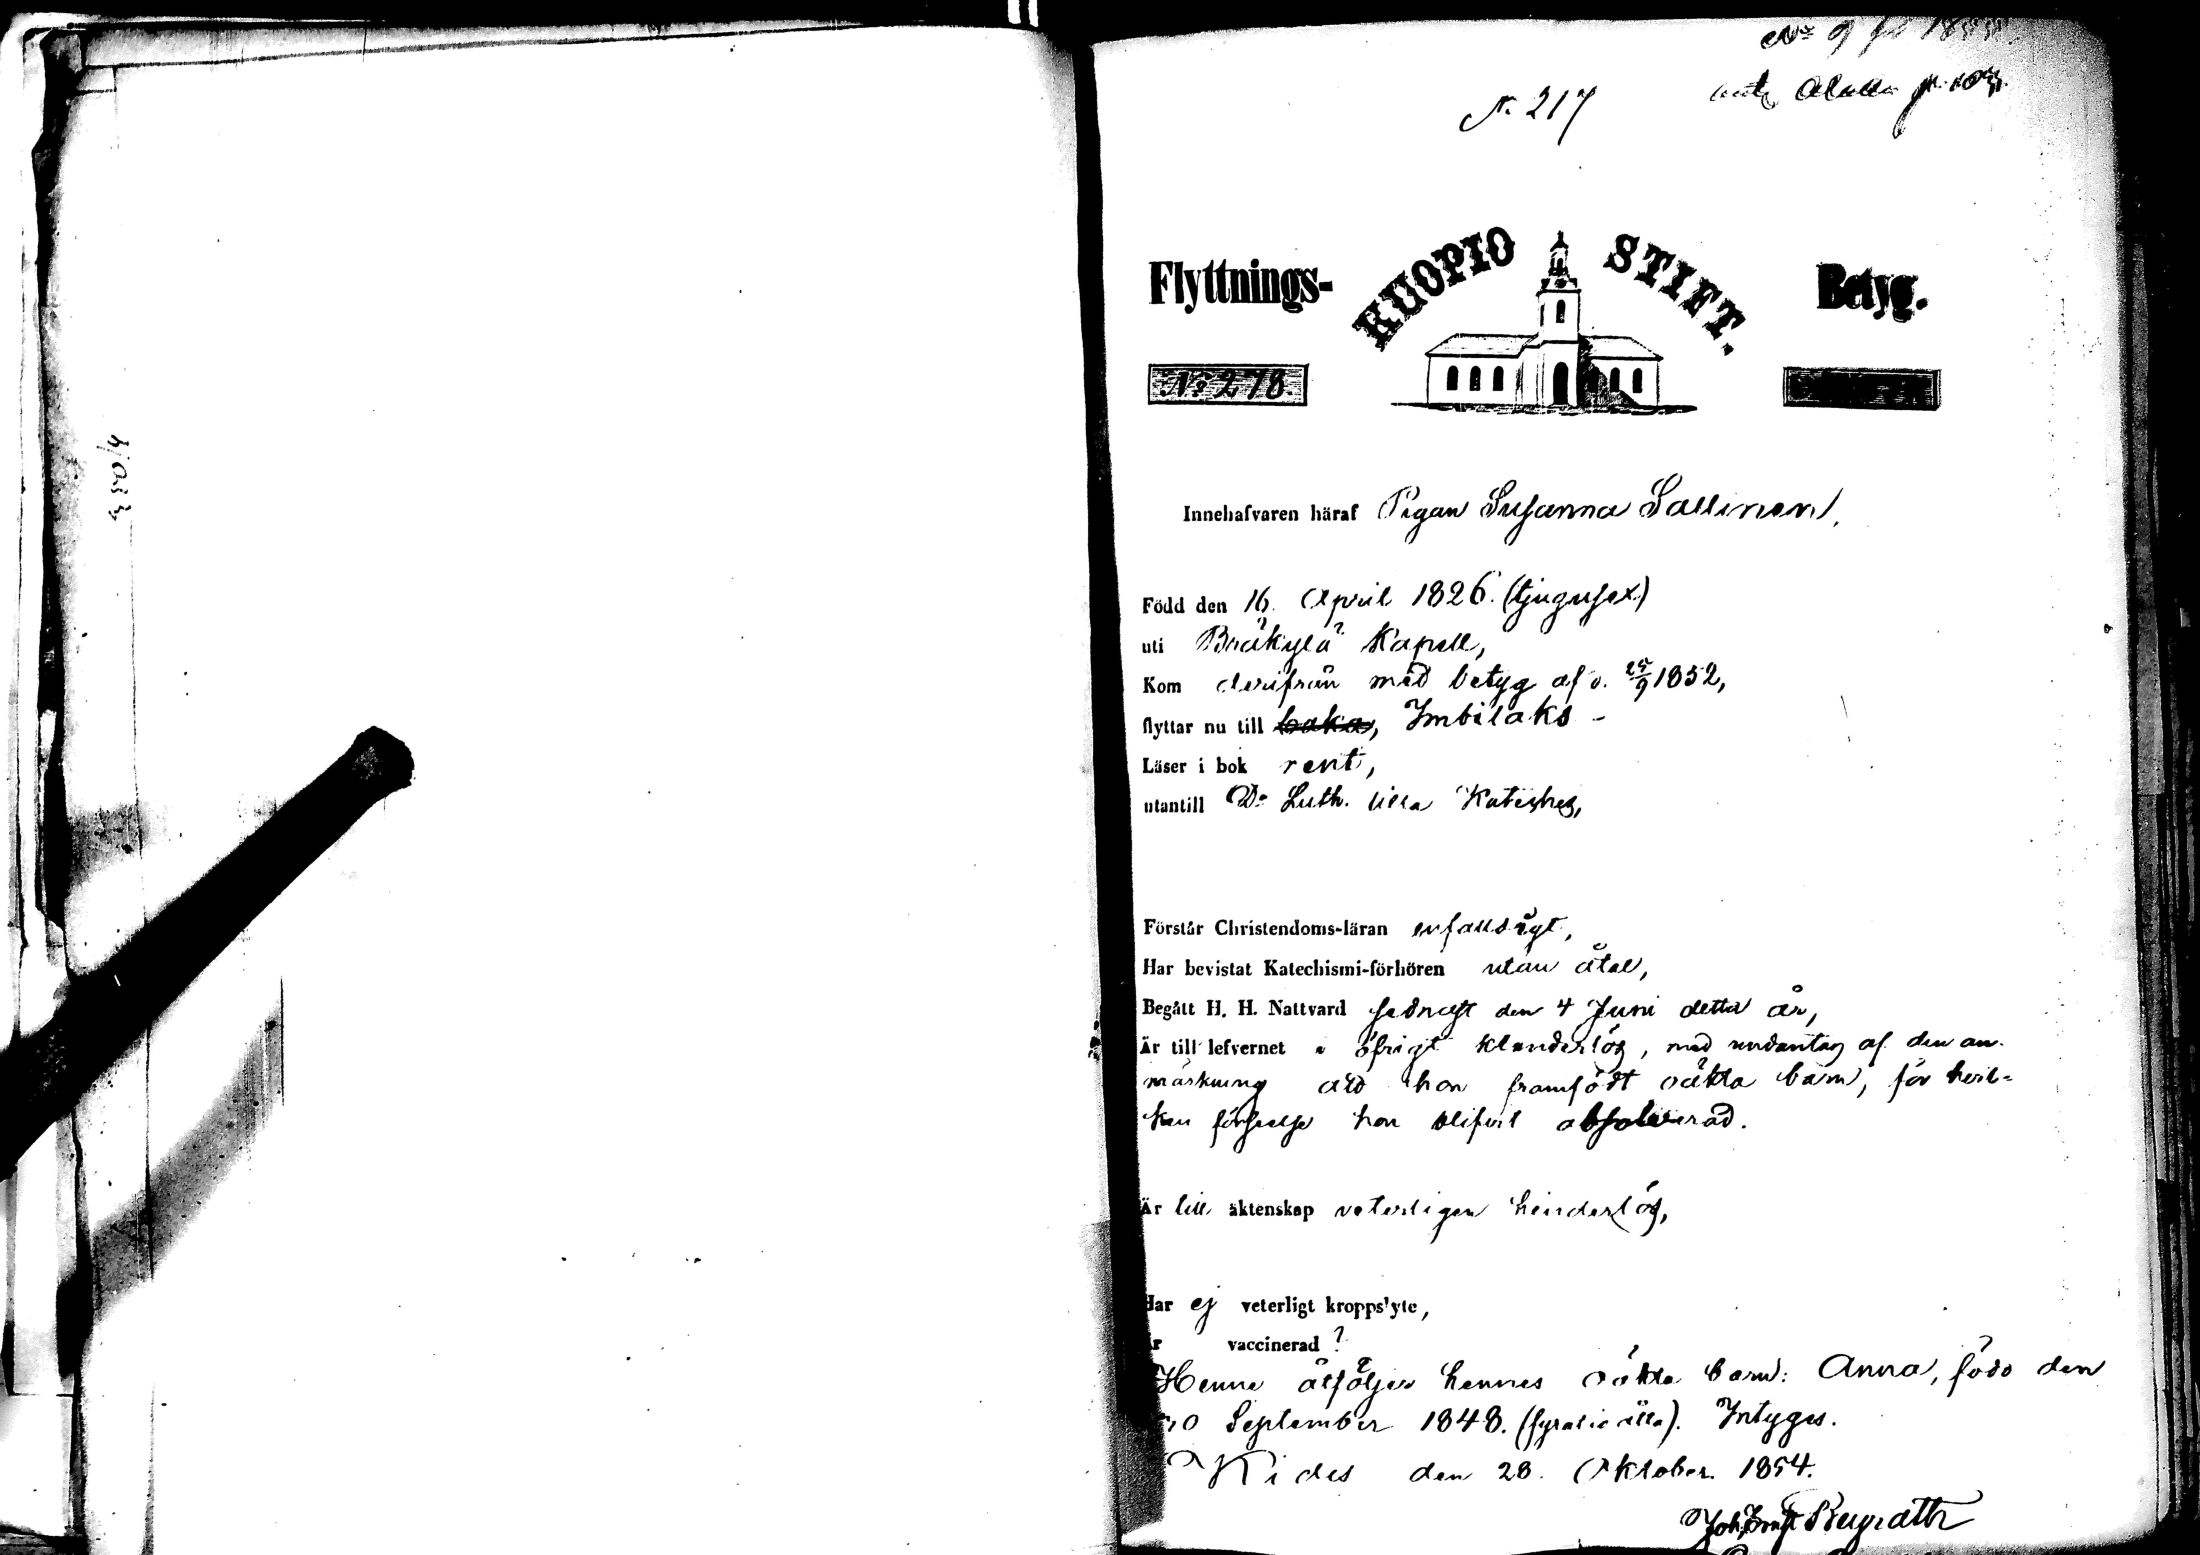 No 9 1855
N. 217
Flyttnings- KUOPIO STIFT. Betyg.
No 278.
Innehafvaren häraf Pigan Susanna Sallinen,
Född den 16. April 1826. (tjugusex)
uti Bräkylä Kapell,
Kom derifrån med betyg af d. 25/9 1852,
flyttar nu till Imbilaks -
Läser i bok rent,
utantill Dr Luth. lilla Kateches,
Förstår Christendoms-läran enfaldigt,
Har bevistat Katechismi-förhören utan åtal,
Begått H. H. Nattvard sednast den 4 Juni detta år,
Är till lefvernet öfrigt klanderlös, med undantag af den an-
märkning att hon framfödt oäkta barn, för hvil-
ken förseelse hon blifvit absolverad.
Är till äktenskap veterligen hinderlös,
Har ej veterligt kroppslyte,
Är vaccinerad?
Henne åtföljer hennes oäkta barn: Anna, född den
10 September 1848. (fyratioåtta). Intygas.
Kides den 28. Oktober 1854.
Joh. Ernst